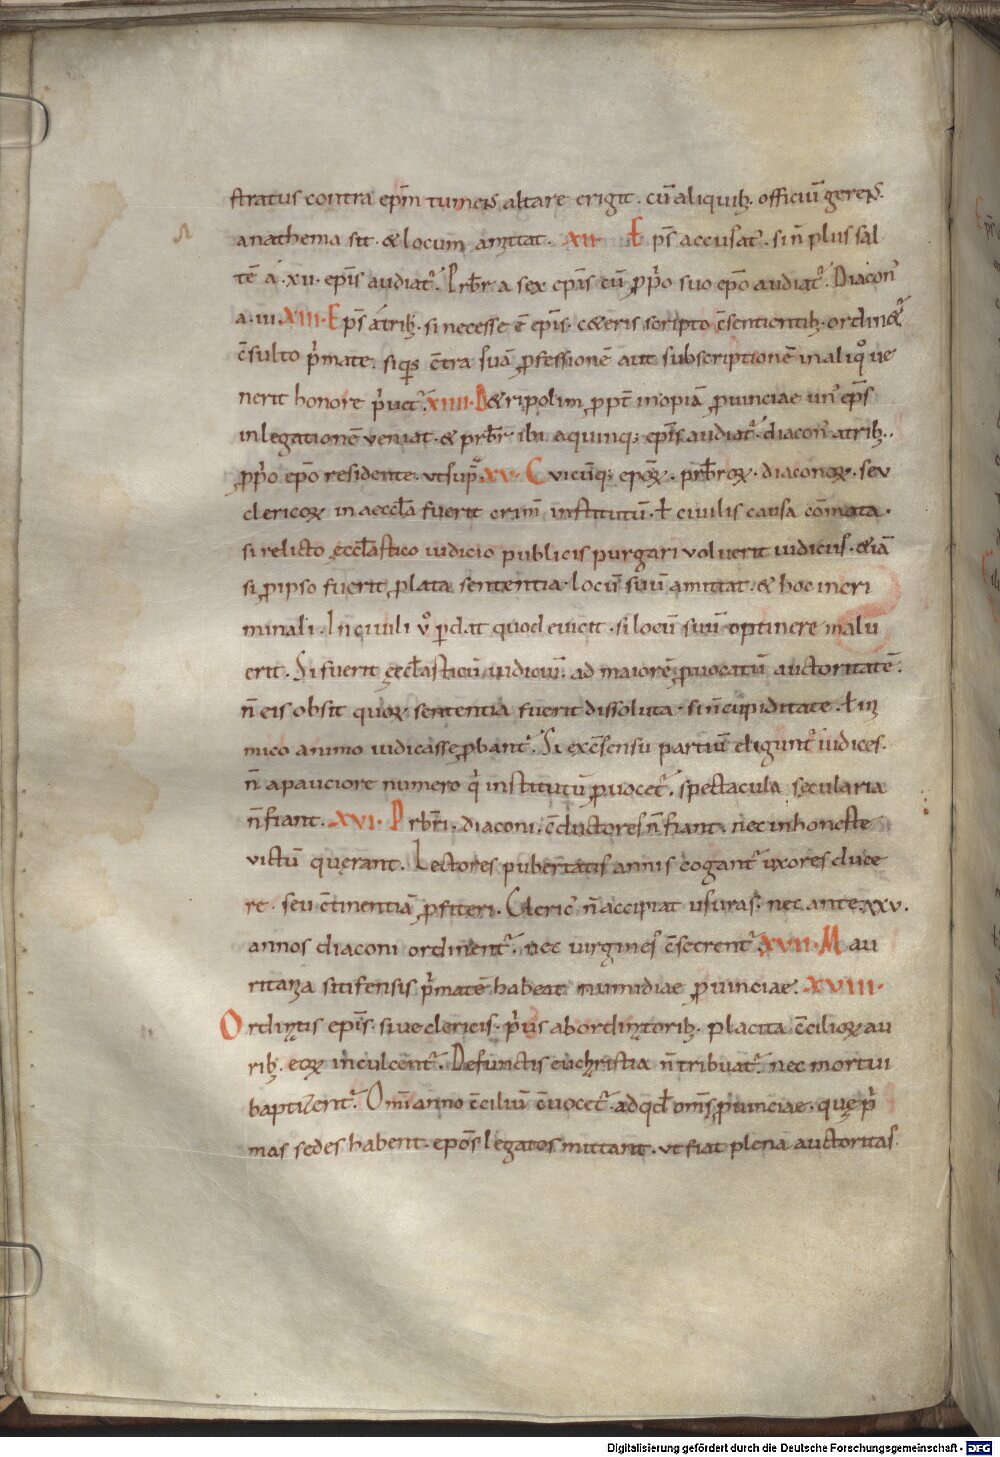 stratus contra ep̄m tumens altare erigit. cū aliquibꝫ. officiū gerens.
anathema sit. & locum amittat. XII. Ep̄s accusat᷑. si n̄ plus sal
tē á .XII. ep̄is audiat᷑. Prb̄r a sex ep̄is cū ꝓp̄o suo ep̄o audiat᷑. Diacon᷒
a .III. XIII. Ep̄s á trib;. si necesse ē ep̄is. c&eris scripto c̄sentientib;. ordin&᷑
c̄sulto p̄mate. siqͥs c̄tra suā ꝓfessionē aut subscriptionē in aliqͦ ue
nerit honore p̄uet᷑. XIIII. De tripolim ꝓpt̄ inopiā ꝓuinciae un᷒ ep̄s
in legationē veniat. & prb̄r ibi a quinq; ep̄is audiat᷑. diacon᷒ a trib;.
ꝓp̄o ep̄o residente. ut sup̄. XV. Cuicūq; ep̄oꝝ. prb̄roꝝ. diaconoꝝ. seu
clericoꝝ in aeccl̄a fuerit crim̄ institutū. ł ciuilis causa cōmota.
si relicto ęccl̄astico iudicio publicis purgari voluerit iudiciis. &iā
si ꝓ ipso fuerit ꝓlata sententia. locū suū amittat. & hoc in cri
minali. In ciuili v̊ ꝑdat quod euicit. si locū suū optinere malu
erit. Si fuerit ęccl̄asticū iudiciū. ad maiorē ꝓuocatū auctoritatē.
n̄ eis obsit quoꝝ sententia fuerit dissoluta. si n̄ cupiditate. ł ini
mico animo iudicasse ꝓbant᷑. Si ex c̄sensu partiū eligunt᷑ iudices.
n̄ a pauciore numero qͥ institutū ꝓuocet᷑. spectacula sęcularia
n̄ fiant. XVI. Prb̄ri. diaconi. c̄ductores n̄ fiant. nec inhoneste
victū querant. Lectores pubertatis annis cogant᷑ uxores duce
re. seu c̄tinentiā ꝓfiteri. Cleric᷒ n̄ accipiat usuras. nec ante XXV.
annos diaconi ordinent᷑. nec virgines c̄secrent᷑. XVII. Mau
ritania sitifensis p̄matē habeat numidiae ꝓuinciae. XVIII.
Ordinatis ep̄is. siue clericis. p̄us ab ordinatorib;. placita c̄cilioꝝ au
rib;. eoꝝ inculcent᷑. Defunctis euchristia n̄ tribuat᷑. nec mortui
baptizent᷑. Omī anno c̄ciliū c̄uocet᷑. ad qd̄ om̄s ꝓuinciae. quę p̄
mas sedes habent. ep̄os legatos mittant. ut fiat plena auctoritas.
Digitalisierung gefördert durch die Deutsche Forschungsgemeinschaft - DFG